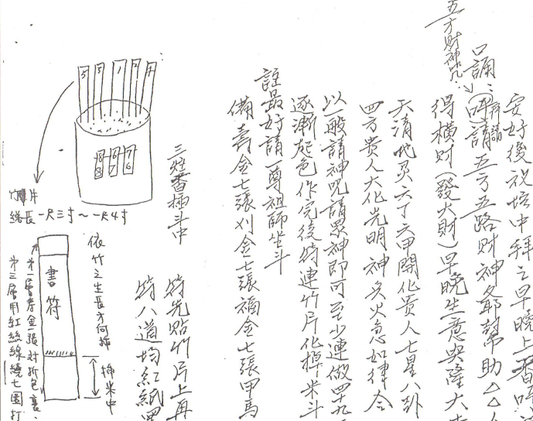 安好後於壇中拜之早晚上香
口誦
請五方五路財神爺幫助△△人
得橫財(發大財)早晚生意興隆大
五方財神咒
天清地灵六丁六甲開化贵人七星八卦
四方貴人大化光明神兵火急如律令
以一般請神咒請眾神即可至少連做四十九
逐漸起色作完後将連竹片化掉米斗
註最好請一尊祖師坐斗
備壽金七張刈金七張福金七張甲馬
三炷香插斗中
符先貼竹片上再
符八道均紅紙
5 3 1 2 4
8 6 7
竹片
總長一尺三寸～一尺4寸
依竹之生長方向插
書符
插米中
第一層壽金一張対折包裹
第二層用紅丝線繞七圈打